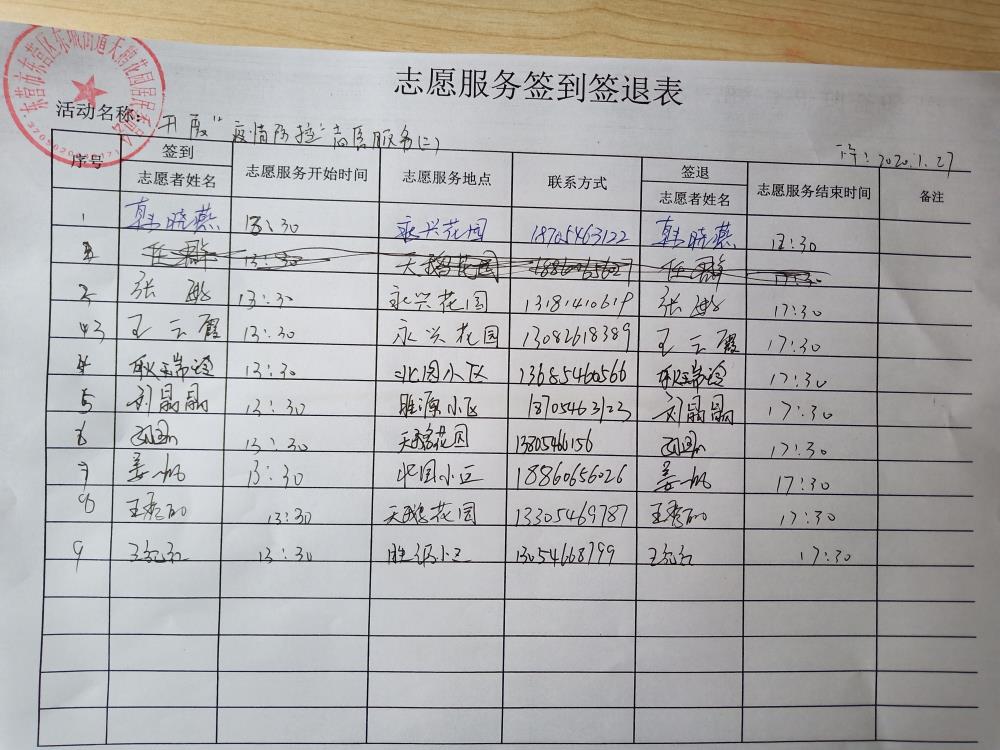 志愿服务签到签退表
东营市东营区东城街道天鹅花园居民委员会
活动名称: 开展"疫情防控"志愿服务(二)
下午: 2020.1.27
序号 签到 志愿者姓名 志愿服务开始时间 志愿服务地点 联系方式 签退 志愿者姓名 志愿服务结束时间 备注
1 韩晓燕 13:30 永兴花园 18705463122 韩晓燕 17:30
天鹅花园
2 张 13:30 永兴花园 13181410619 张 17:30
3 王云霞 13:30 永兴花园 13082618389 王云霞 17:30
4 耿瑞玲 13:30 北园小区 13685460566 耿瑞玲 17:30
5 刘晶晶 13:30 胜源小区 18705463123 刘晶晶 17:30
6 13:30 天鹅花园 17:30
7 姜一帆 13:30 北园小区 18860656026 姜一帆 17:30
8 王秀丽 13:30 天鹅花园 13305469787 王秀丽 17:30
9 13:30 13054668799 17:30